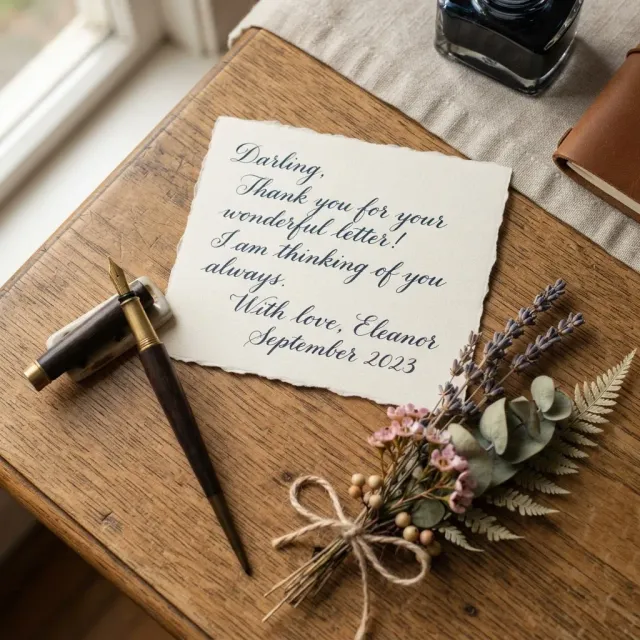 Darling,
Thank you for your
wonderful letter!
I am thinking of you
always.
With love, Eleanor
September 2023